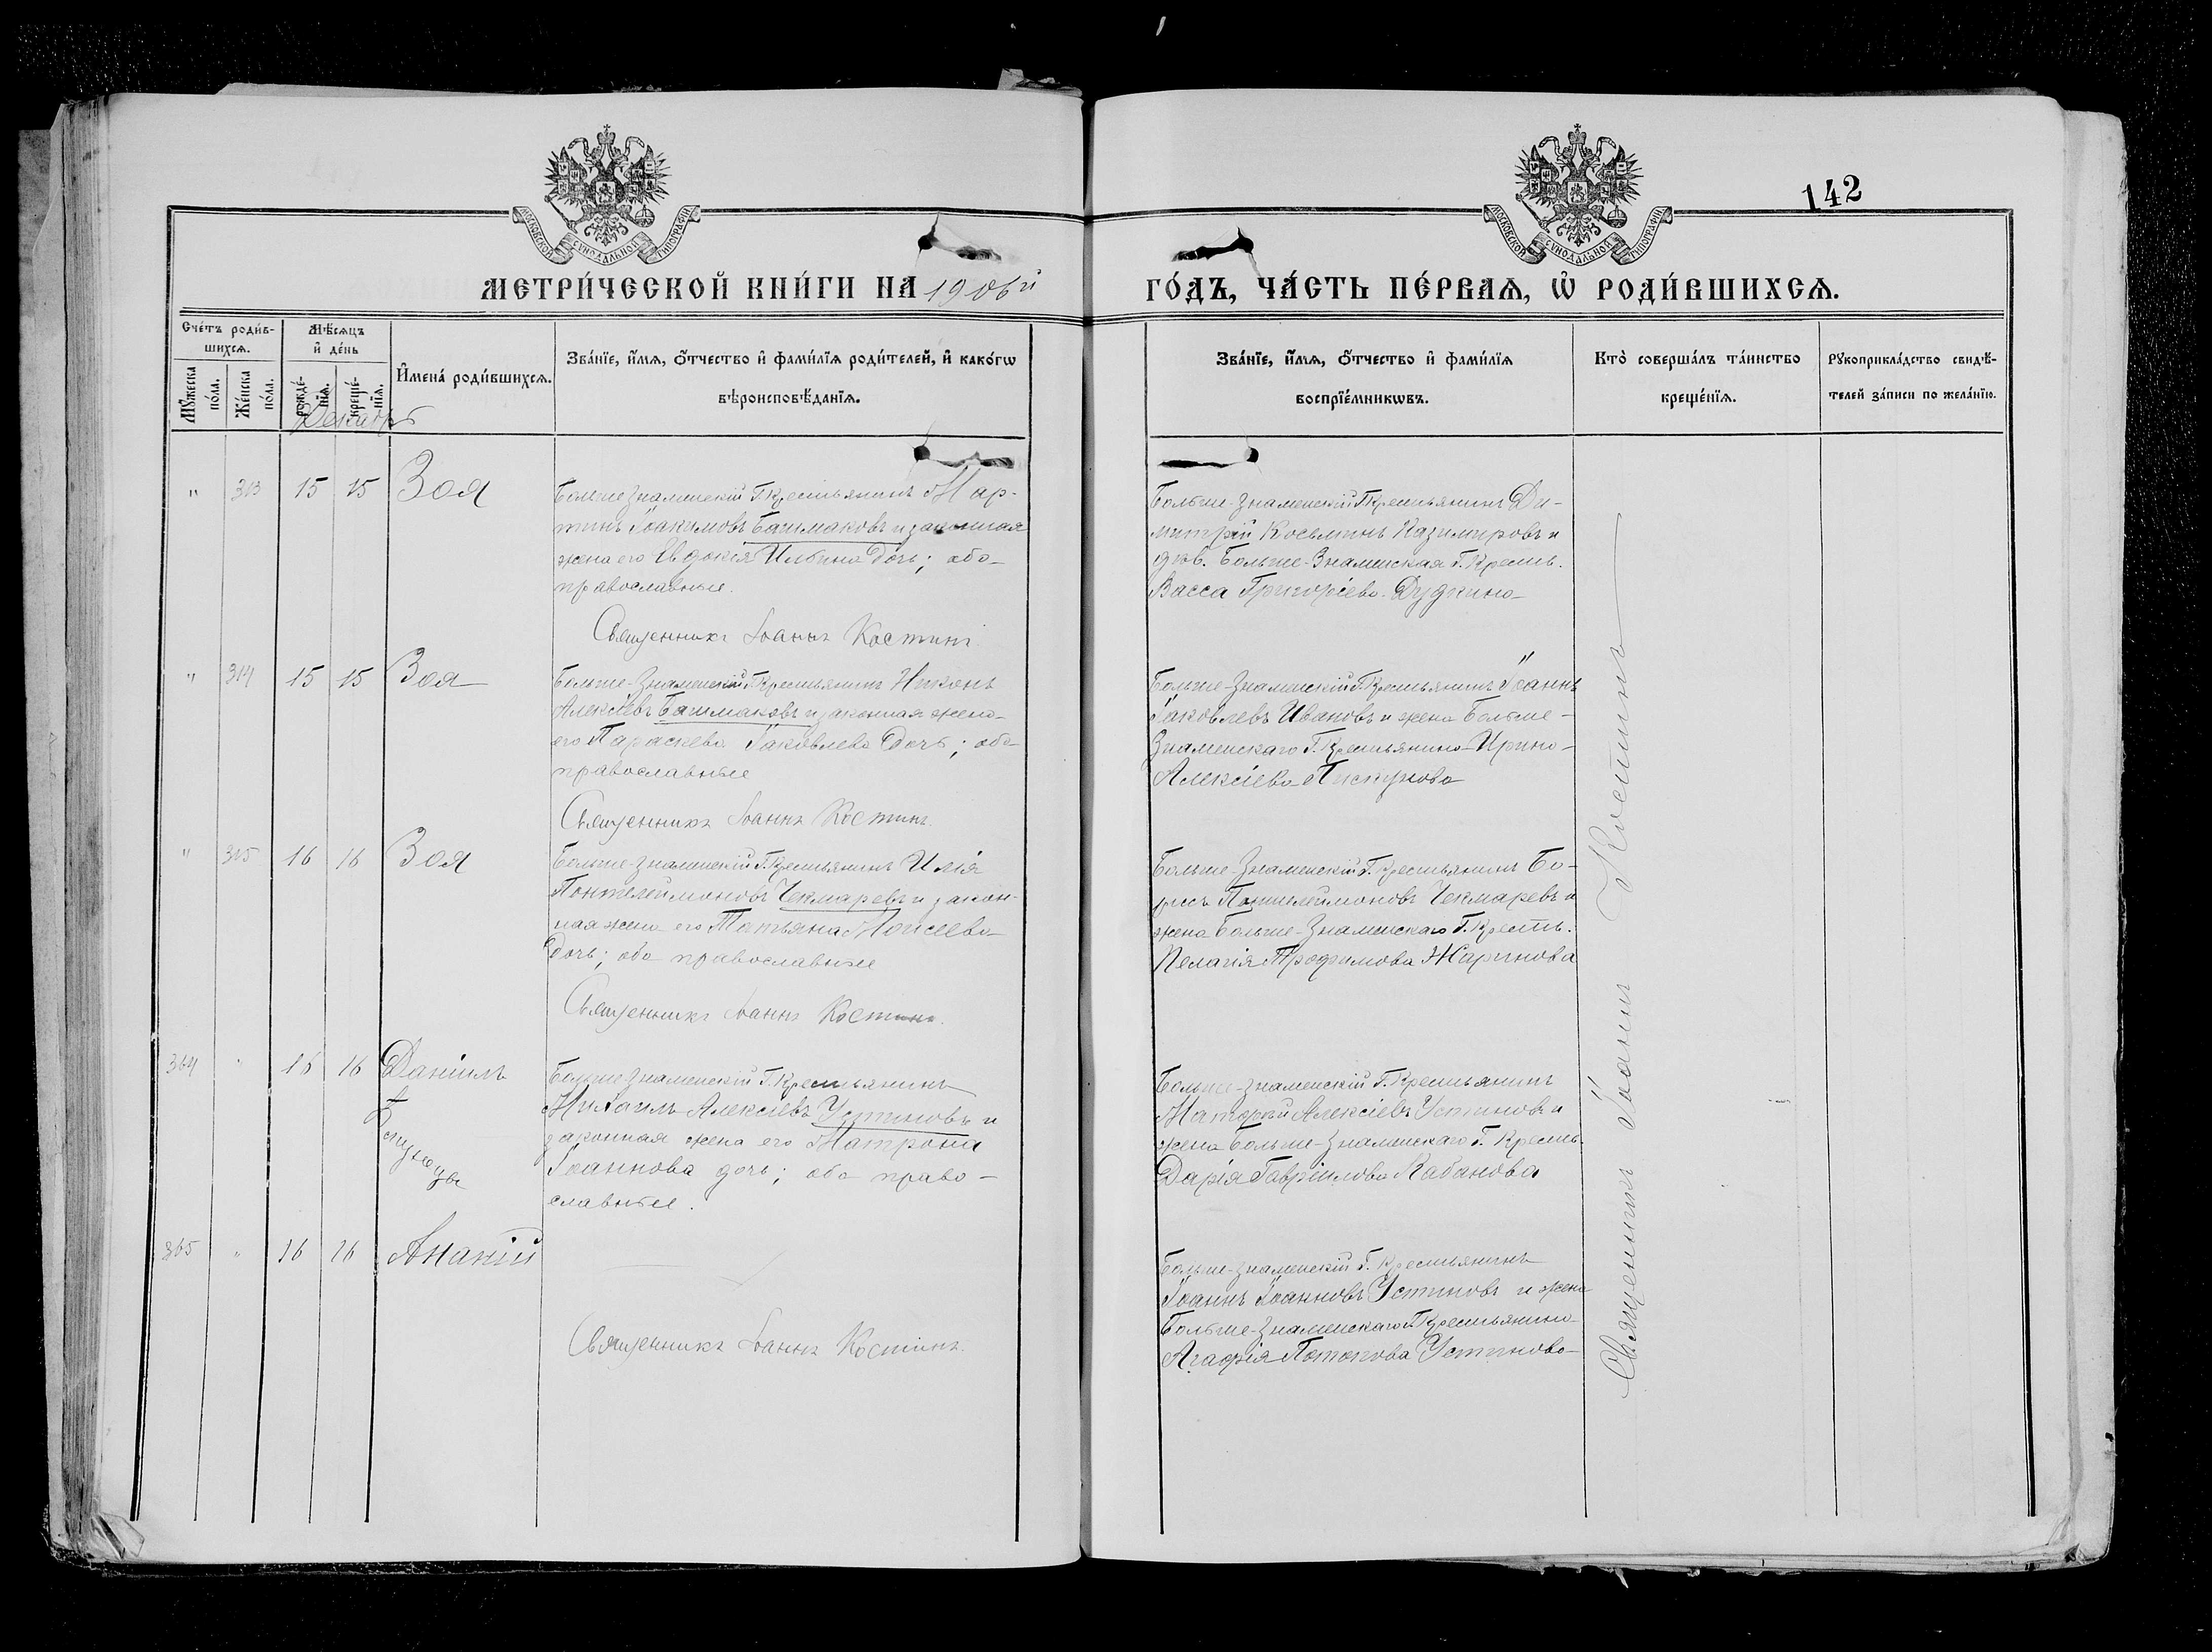 142
МОСКОВСКОЙ СУНОДАЛЬНОЙ ТИПОГРАФІИ
МОСКОВСКОЙ СУНОДАЛЬНОЙ ТИПОГРАФІИ
МЕТРИ́ЧЕСКОЙ КНИ́ГИ НА 1906й ГО́ДЪ, ЧА́СТЬ ПЕ́РВАѦ, Ѡ҆ РОДИ́ВШИХСѦ.
Сче́тъ роди́в-
шихсѧ.
Мꙋ́жеска по́ла.
Же́нска по́ла.
Мѣ́сѧцъ
и҆ де́нь
рожде́-
нїѧ.
креще́-
нїѧ.
Декабрь
И҆мена́ роди́вшихсѧ.
Зва́нїе, и҆́мѧ, ѻ҆́тчество и҆ фами́лїѧ роди́телей, и҆ како́гѡ
вѣроисповѣ́данїѧ.
Зва́нїе, и҆́мѧ, ѻ҆́тчество и҆ фами́лїѧ
воспрїе́мникѡвъ.
Кто̀ соверша́лъ та́инство
креще́нїѧ.
Рꙋкоприкла́дство свидѣ́-
телей за́писи по жела́нїю.
" 313 15 15 Зоя
Больше Знаменскій Г. Крестьянинъ Мар-
тинъ Іоакимовъ Башмаковъ и законная
жена его Евдокія Ильина дочь; оба
православные.
Священникъ Іоаннъ Костинъ
Больше-Знаменскій Г. Крестьянинъ Ди-
митрій Косьминъ Казимировъ и
дѣв. Больше-Знаменская Г. Крест.
Васса Григоріева Дудкина
" 314 15 15 Зоя
Больше-Знаменскій Г. Крестьянинъ Никонъ
Алексіевъ Башмаковъ и законная жена
его Параскева Іаковлева дочь; оба
православные
Священникъ Іоаннъ Костинъ.
Больше-Знаменскій Г. Крестьянинъ Іоаннъ
Іаковлевъ Ивановъ и жена Больше-
Знаменскаго Г. Крестьянина Ирина
Алексіева Пискунова
" 315 16 16 Зоя
Больше-Знаменскій Г. Крестьянинъ Илія
Пантелеимоновъ Чекмаревъ и закон-
ная жена его Татьяна Моисеева
дочь; оба православные
Священникъ Іоаннъ Костинъ.
Больше-Знаменскій Г. Крестьянинъ Бо-
рисъ Пантелеимоновъ Чекмаревъ и
жена Больше-Знаменскаго Г. Кресть.
Пелагія Трофимова Жаринова
364 " 16 16 Даніилъ
Близнецы
Больше Знаменскій Г. Крестьянинъ
Михаилъ Алексіевъ Устиновъ и
законная жена его Матрона
Іоаннова дочь; оба право-
славные.
Больше-Знаменскій Г. Крестьянинъ
Матѳей Алексіевъ Устиновъ и
жена Больше-Знаменскаго Г. Кресть.
Дарія Гавріилова Кабанова
365 " 16 16 Ананій
Священникъ Іоаннъ Костинъ.
Больше-Знаменскій Г. Крестьянинъ
Іоаннъ Іоанновъ Устиновъ и жена
Больше-Знаменскаго Г. Крестьянина
Агафія Потапова Устинова
Священникъ Іоаннъ Костинъ